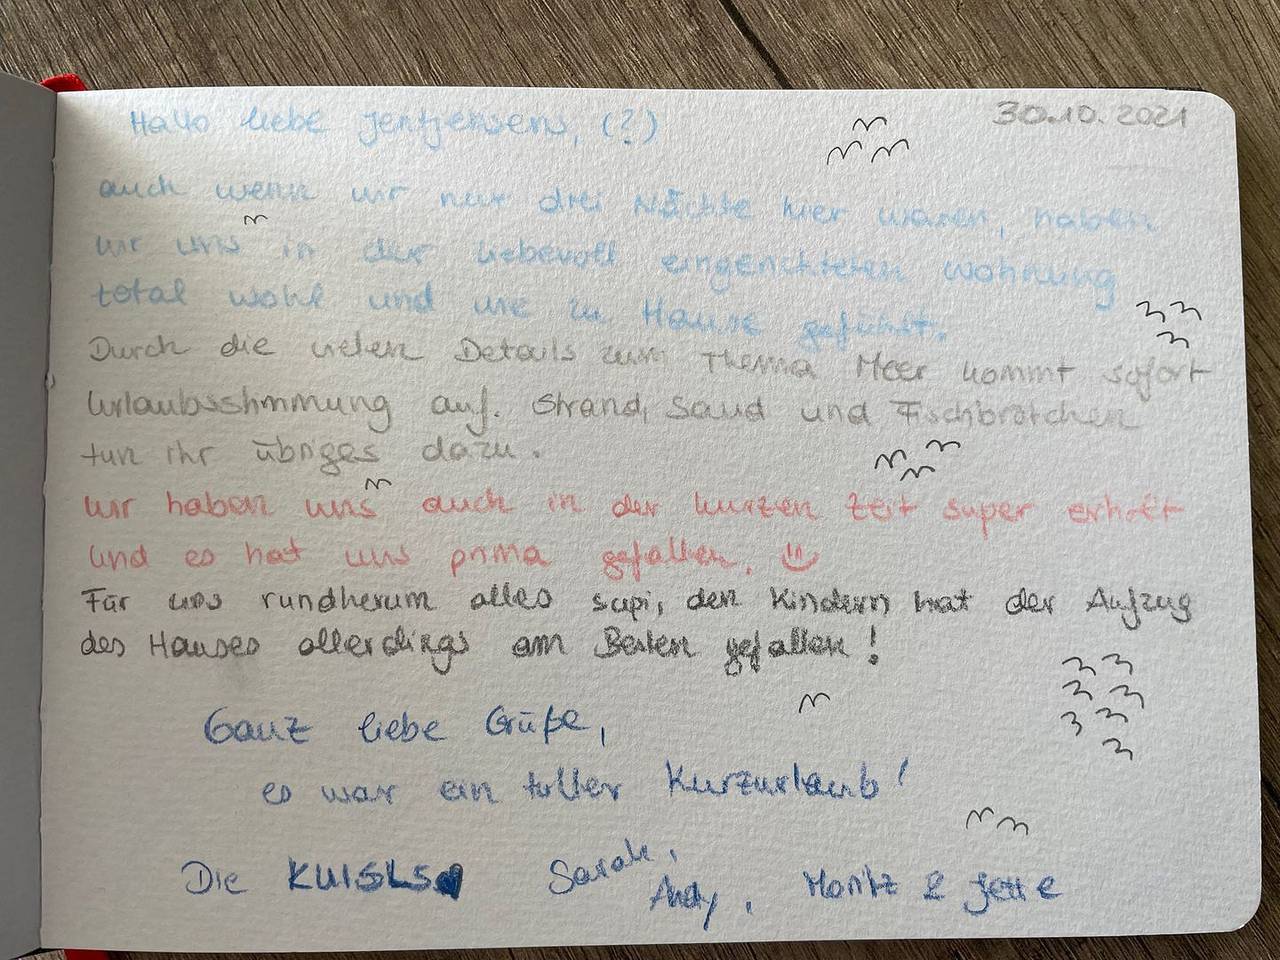 30.10.2021
Hallo liebe Jentjensens, (?)
auch wenn wir nur drei Nächte hier waren, haben
wir uns in der liebevoll eingerichteten Wohnung
total wohl und wie zu Hause gefühlt.
Durch die vielen Details zum Thema Meer kommt sofort
Urlaubsstimmung auf. Strand, Sand und Fischbrötchen
tun ihr übriges dazu.
Wir haben uns auch in der kurzen Zeit super erholt
und es hat uns prima gefallen.
Für uns rundherum alles supi, den Kindern hat der Aufzug
des Hauses allerdings am Besten gefallen!
Ganz liebe Grüße,
es war ein toller Kurzurlaub!
Die Sarah, Andy, Moritz & Jette